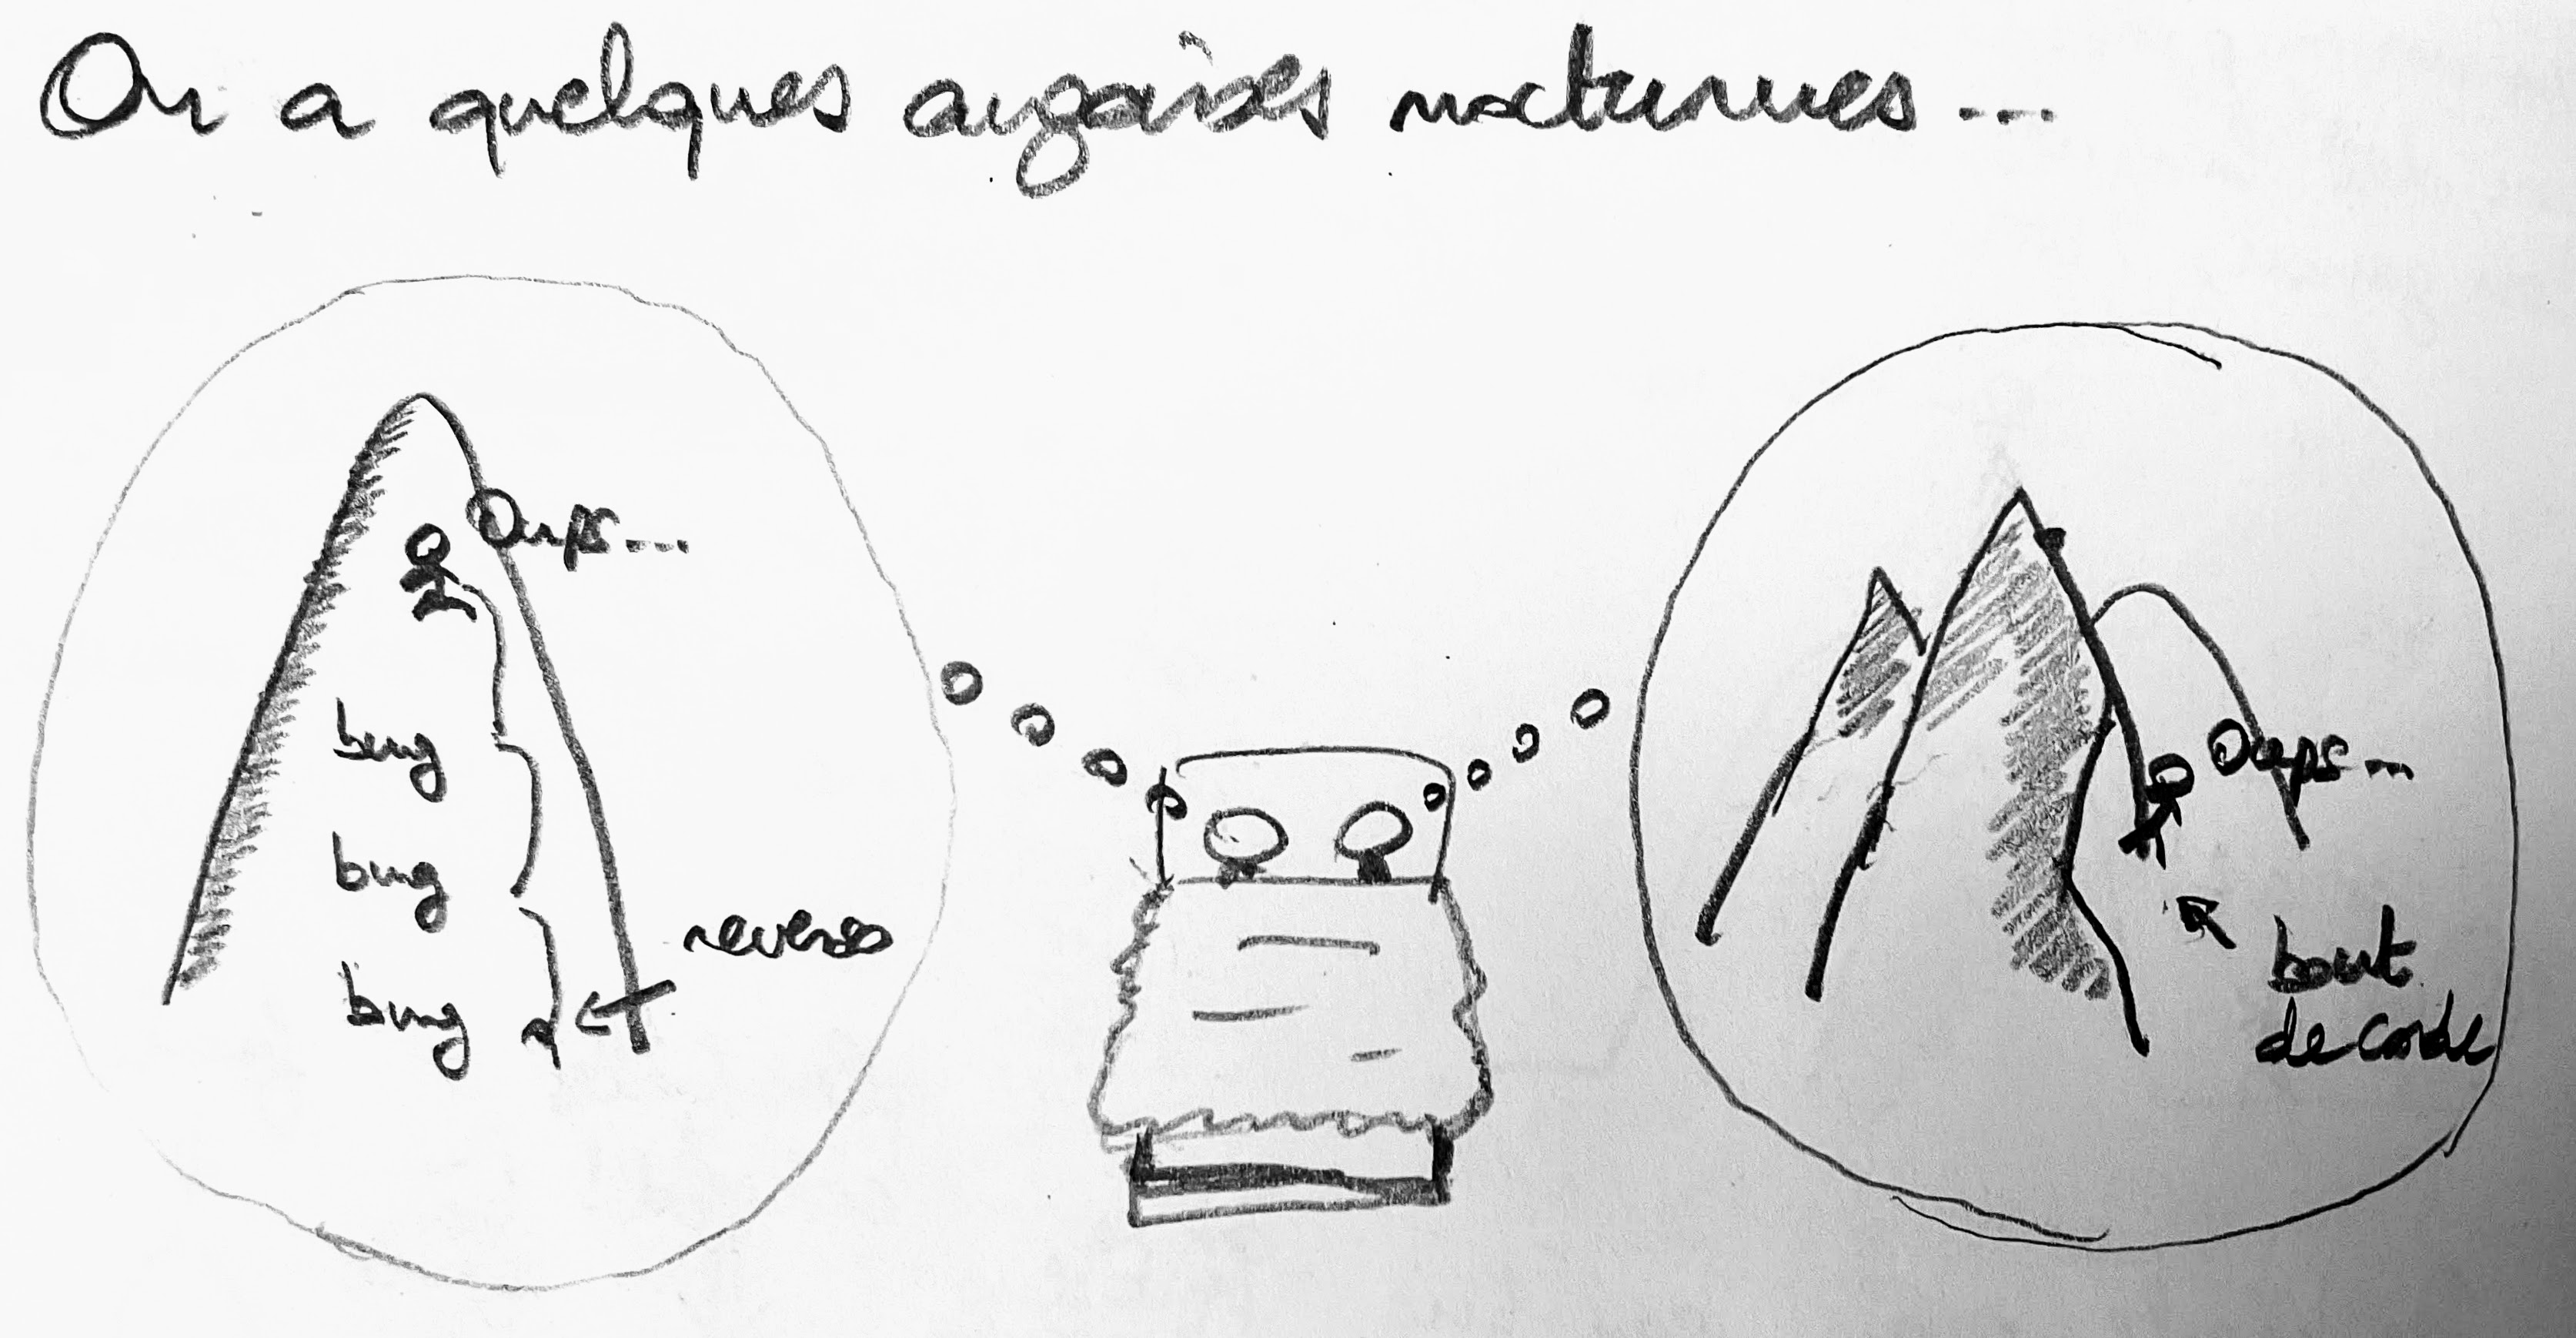 On a quelques angoisses nocturnes...
Oups...
bing
bing
bing
reverso
Oups...
bout
de corde